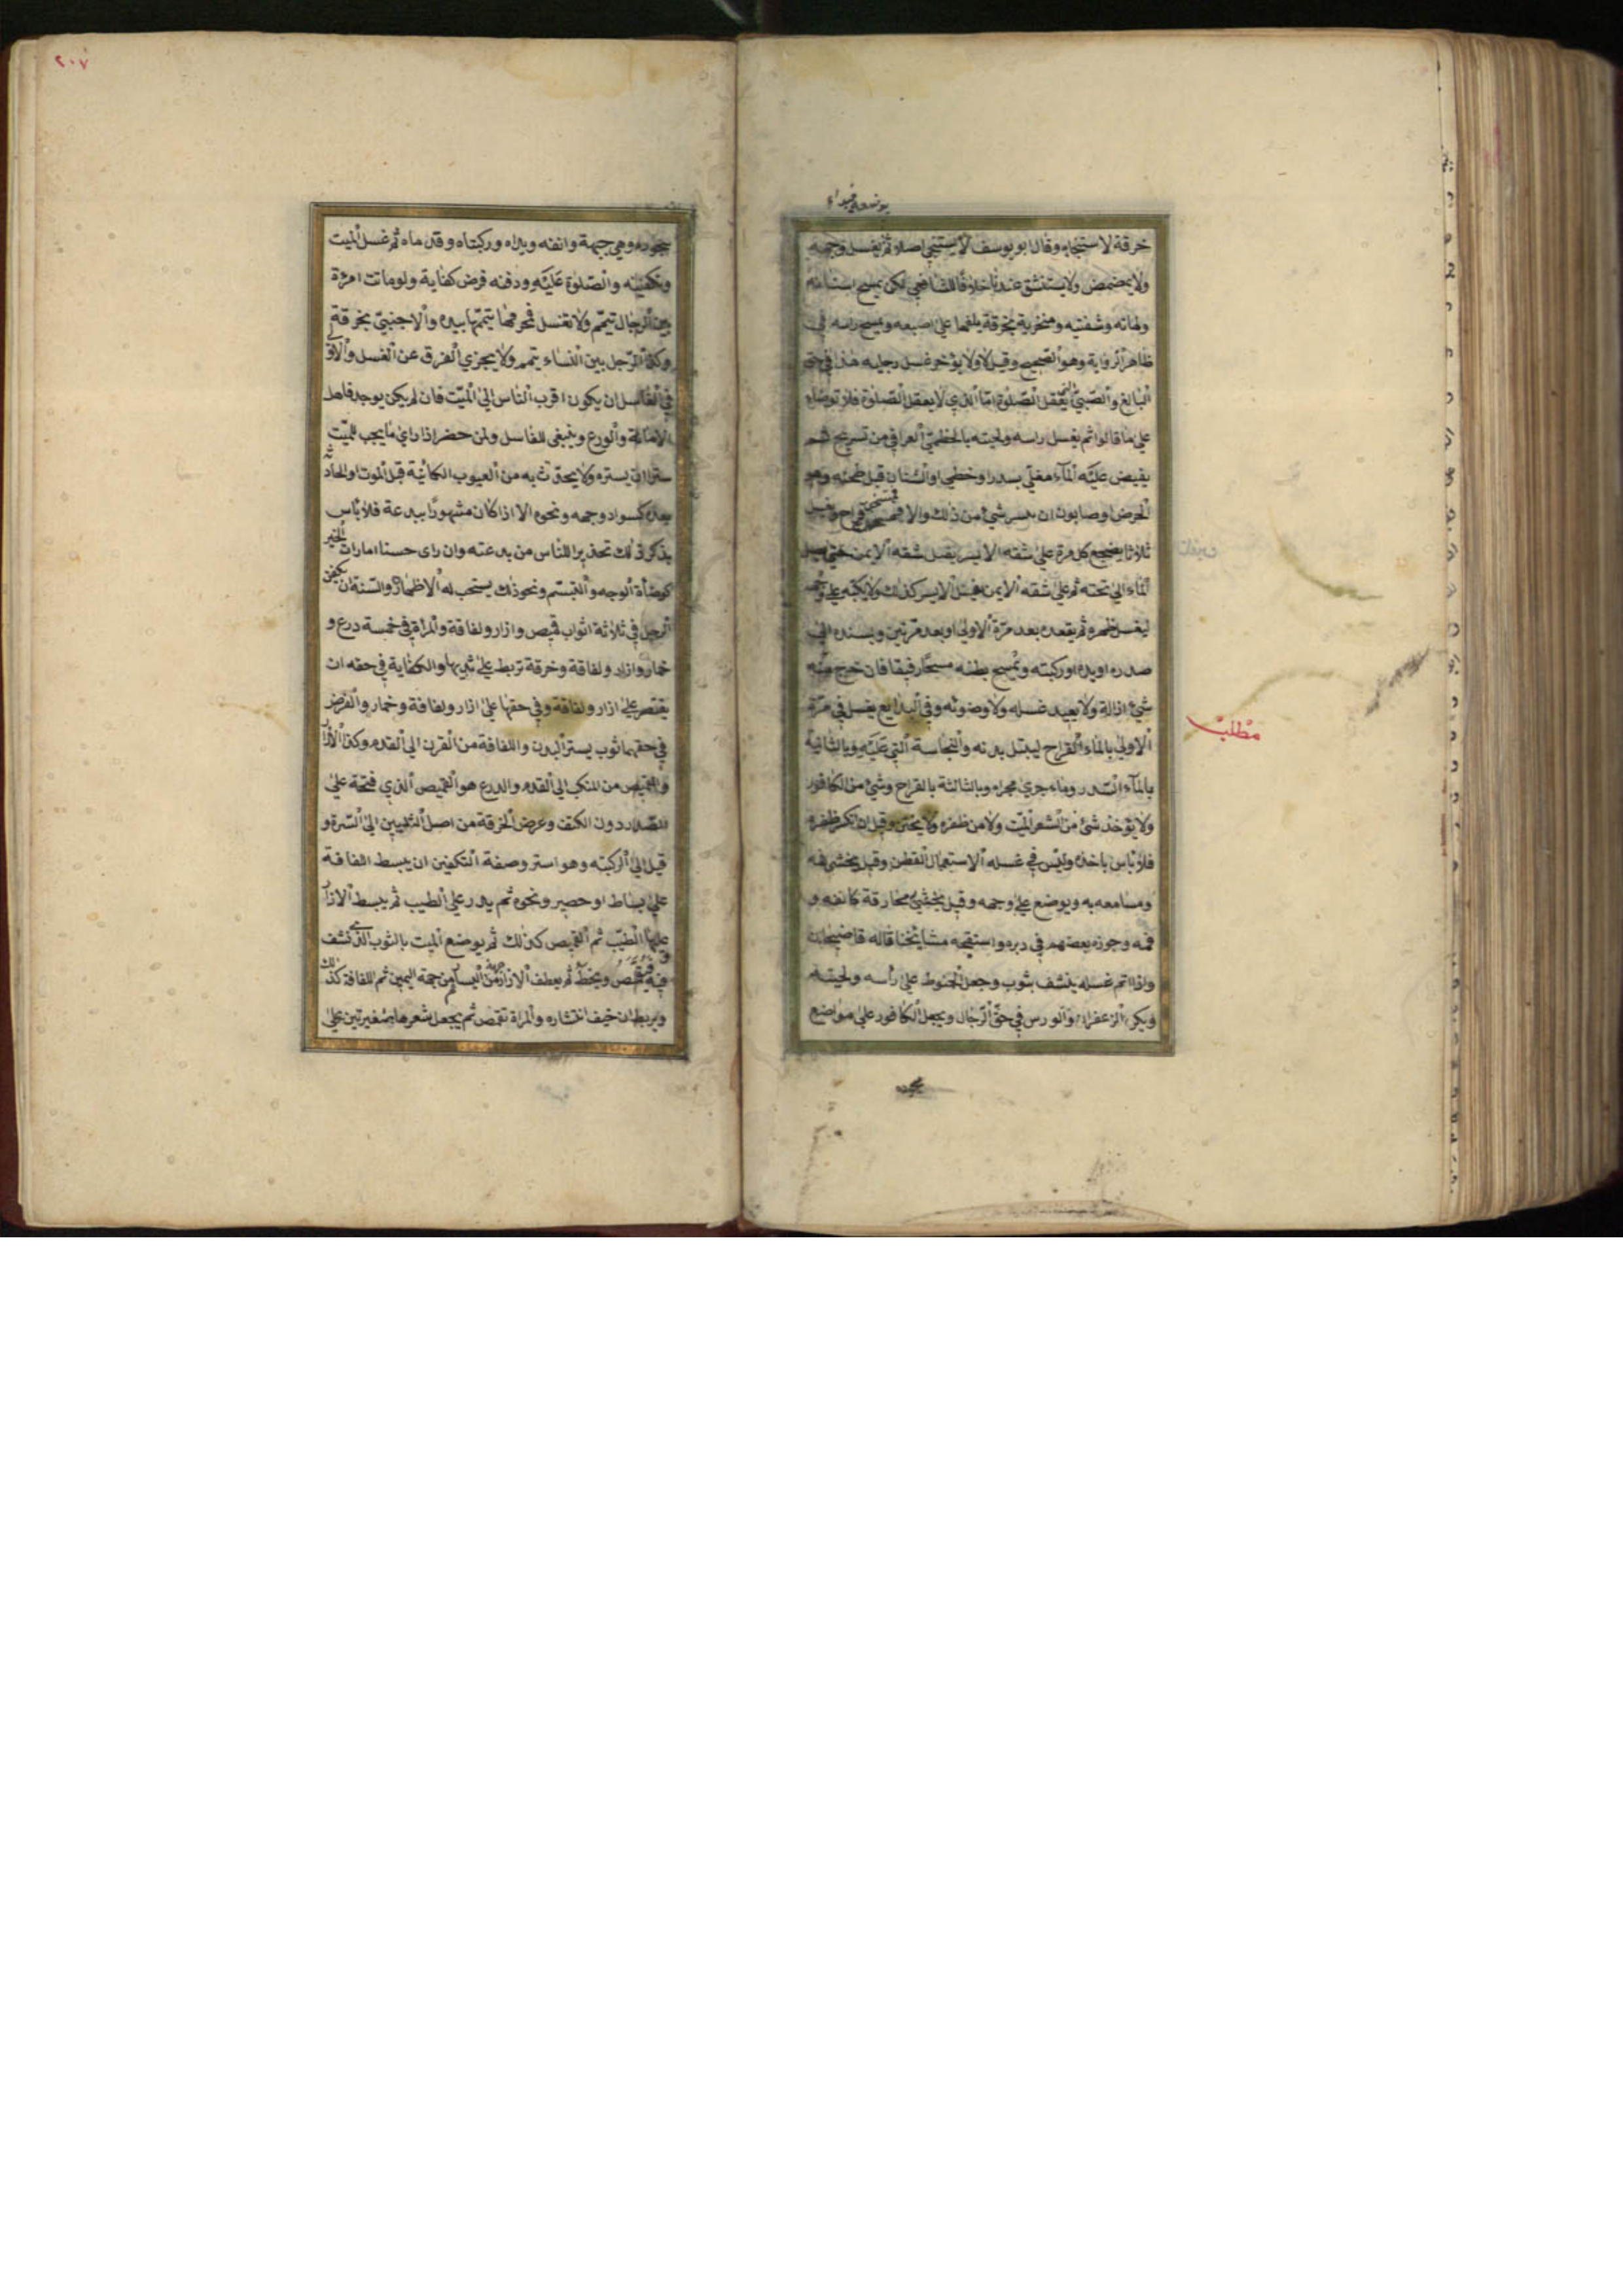 خرقة لاستنجائه وقال ابو يوسف لا يستنجي اصلا ثم يغسل وجهه
ولا يمضمض ولا يستنشق عندنا خلافا للشافعي لكن يمسح اسنانه
ولهاته وشفتيه ومنخريه بخرقة يلفها على اصبعه ويمسح راسه في
ظاهر الرواية وهو الصحيح وقيل لا ولا يؤخر غسل رجليه هذا في حق
البالغ والصبي الذي يعقل الصلوة اما الذي لا يعقل الصلوة فلا توضاه
على ما قالوا ثم يغسل راسه ولحيته بالخطمي العراقي من تسريح ثم
يفيض عليه الماء مغلى بسدر او خطمي او اشنان قبل طحنه وهو
الحرض او صابون ان تيسر شيء من ذلك والا قراح ويغسل
ثلاثا يضجع كل مرة على شقه الايسر يغسل شقه الايمن حتى يصل
الماء الى تحته ثم على شقه الايمن فيغسل الايسر كذلك ولا يكبه على وجهه
ليغسل ظهره ثم يقعده بعد مرة الاولى او بعد مرتين ويسنده الى
صدره او يده او ركبته ويمسح بطنه مسحا رفيقا فان خرج منه
شيء ازاله ولا يعيد غسله ولا وضوئه وفي البدايع يغسل في مرة
الاولى بالماء القراح ليبتل بدنه والنجاسة التي عليه وبالثانية
بالماء السدر وماء جرى مجراه وبالثالثة بالقراح وشيء من الكافور
ولا يؤخذ شئ من الشعر الميت ولا من ظفره ولا يختن وقيل ان تكسر ظفره
فلا باس باخذه وليس في غسله الاستعمال القطن وقيل يحشى فمه
ومسامعه به ويوضع على وجهه وقيل يحشى مخارقه كانفه و
فمه وجوزه بعضهم في دبره واستقبحه مشايخنا قاله قاضيخان
واذا تم غسله ينشف بثوب وجعل الحنوط على رأسه ولحيته
ويكره الزعفران والورس في حق الرجال ويجعل الكافور على مواضع
مطلب
٢٠٧
سجوده وهي جبهة وانفه ويداه وركبتاه وقدماه ثم غسل الميت
وتكفينه والصلوة عليه ودفنه فرض كفاية ولو ماتت امرة
بين الرجال تيمم ولا تغسل فمحرمها يتممها بيده والاجنبي بخرقة
وكذا الرجل بين النساء يتمم ولا يجزي الغرق عن الغسل والاولى
في الغاسل ان يكون اقرب الناس الى الميت فان لم يكن يوجد فاهل
الامانة والورع وينبغى للغاسل ولمن حضر اذا راى ما يجب للميت
ستره ان يستره ولا يحدث به من العيوب الكائنة قبل الموت او الحادثة
بعده كسواد وجهه ونحوه الا اذا كان مشهورا ببدعة فلا باس
بذكر ذلك تحذيرا للناس من بدعته وان راى حسنا امارات الخير
كوضاءة الوجه والتبسم ونحو ذلك يستحب له الاظهار والسنة ان يكفن
الرجل في ثلاثة اثواب قميص وازار ولفافة والمراة في خمسة درع و
خمار وازار ولفافة وخرقة تربط على ثديها والكفاية في حقه ان
يقتصر على ازار ولفافة وفي حقها على ازار ولفافة وخمار والفرض
في حقهما ثوب يستر البدن واللفافة من القرن الى القدم وكذا الازار
والقميص من المنكب الى القدم والدرع هو القميص الذي فتحة على
الصدر دون الكتف وعرض الخرقة من اصل الثديين الى السرة و
قيل الى الركبته وهو استر وصفة التكفين ان يبسط الفافة
على بساط او حصير ونحوه ثم يدر على الطيب ثم يبسط الازار
عليها الطيب ثم القميص كذلك ثم يوضع الميت بالثوب الذي نشف
فيه فيقمص ويحنط ثم يعطف الازار من جهة اليسار ثم من جهة اليمين ثم اللفافة كذلك
ويربط ان خيف انتشاره والمراة تقمص ثم يجعل شعرها ضفيرتين على